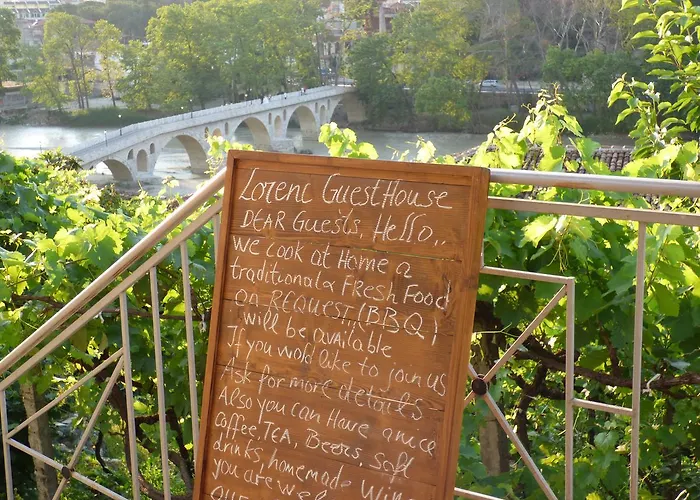 Lorenc GuestHouse
DEAR Guests, Hello,,
We Cook at Home a
traditional & FResh Food
on REQUEST!(BBQ)
will be available
If you wold like to join us
Ask for more details
Also you can Have a nice
coffee, TEA, Beers, Soft
drinks, homemade Wine
you are wel